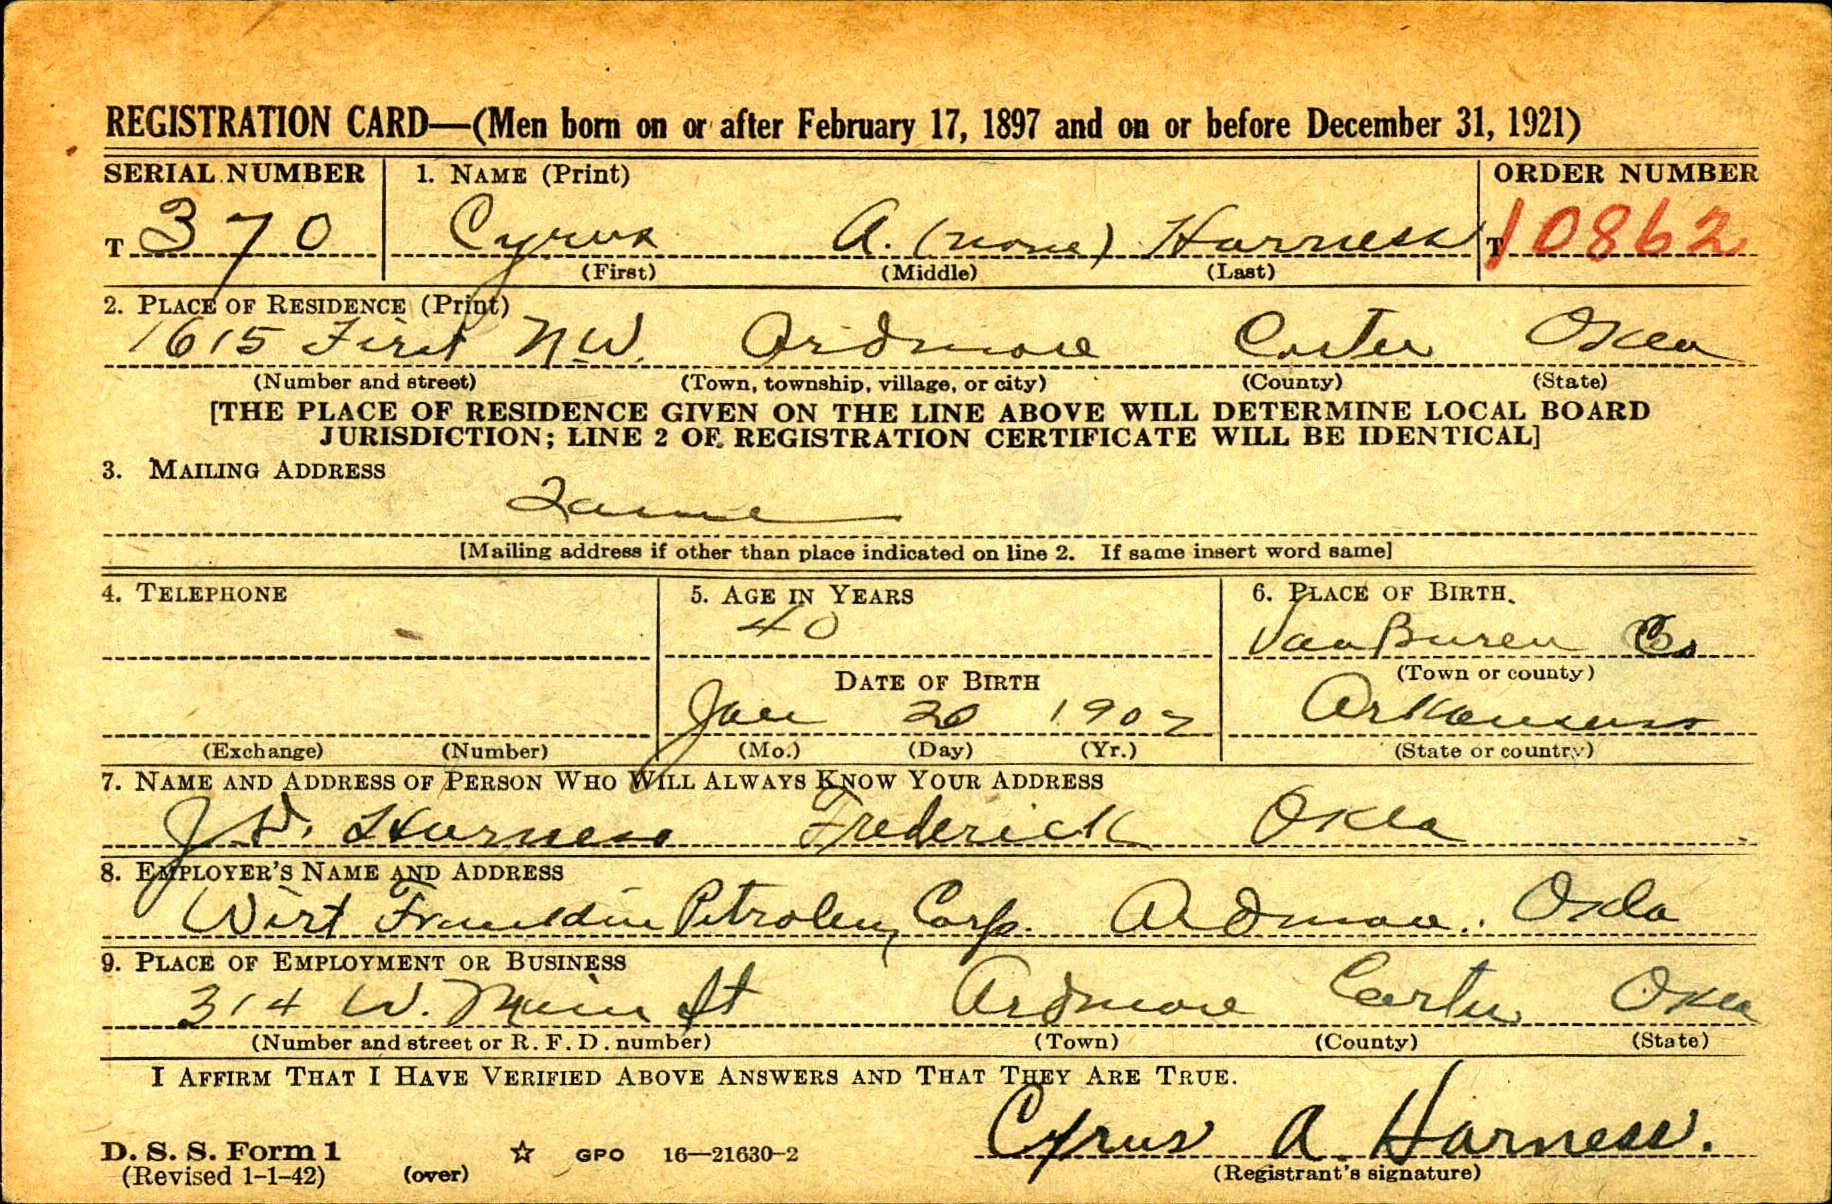 REGISTRATION CARD—(Men born on or after February 17, 1897 and on or before December 31, 1921)
SERIAL NUMBER 1. NAME (Print) ORDER NUMBER
T 370 Cyrus A. (none) Harness T 10862
(First) (Middle) (Last)
2. PLACE OF RESIDENCE (Print)
1615 First N.W. Ardmore Carter Okla
(Number and street) (Town, township, village, or city) (County) (State)
[THE PLACE OF RESIDENCE GIVEN ON THE LINE ABOVE WILL DETERMINE LOCAL BOARD
JURISDICTION; LINE 2 OF REGISTRATION CERTIFICATE WILL BE IDENTICAL]
3. MAILING ADDRESS
Same
[Mailing address if other than place indicated on line 2. If same insert word same]
4. TELEPHONE 5. AGE IN YEARS 6. PLACE OF BIRTH
40 Van Buren Co
DATE OF BIRTH (Town or county)
Jan 20 1902 Arkansas
(Exchange) (Number) (Mo.) (Day) (Yr.) (State or country)
7. NAME AND ADDRESS OF PERSON WHO WILL ALWAYS KNOW YOUR ADDRESS
Harness Frederick Okla
8. EMPLOYER'S NAME AND ADDRESS
Wirt Franklin Petroleum Corp. Ardmore. Okla
9. PLACE OF EMPLOYMENT OR BUSINESS
314 W. Main St Ardmore Carter Okla
(Number and street or R. F. D. number) (Town) (County) (State)
I AFFIRM THAT I HAVE VERIFIED ABOVE ANSWERS AND THAT THEY ARE TRUE.
Cyrus A. Harness.
D. S. S. Form 1 ☆ GPO 16—21630-2
(Revised 1-1-42) (over) (Registrant's signature)